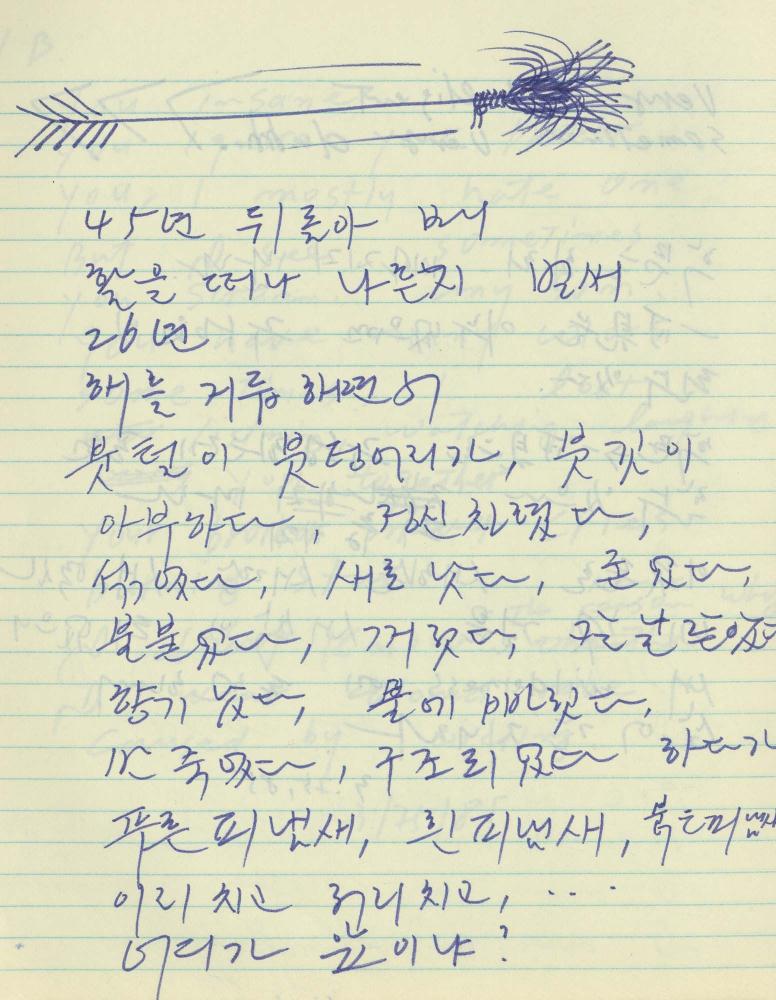 45년 뒤 돌아 보니
활을 떠나 나른지 벌써
26년
해를 거듭 해면서
붓털이 붓텅어리가, 붓깃이
아부하다, 정신차렸다,
썩었다, 새로 낫다, 존 았다,
불붙었다, 꺼 젓다,
향기 낫다, 물에 빠젓다,
죽었다, 구조 되었다 하다가
푸른 피 냄새, 흰 피 냄새, 붉은 피 냄새
이리 치고 저리 치고, ...
어디가 끝이냐?